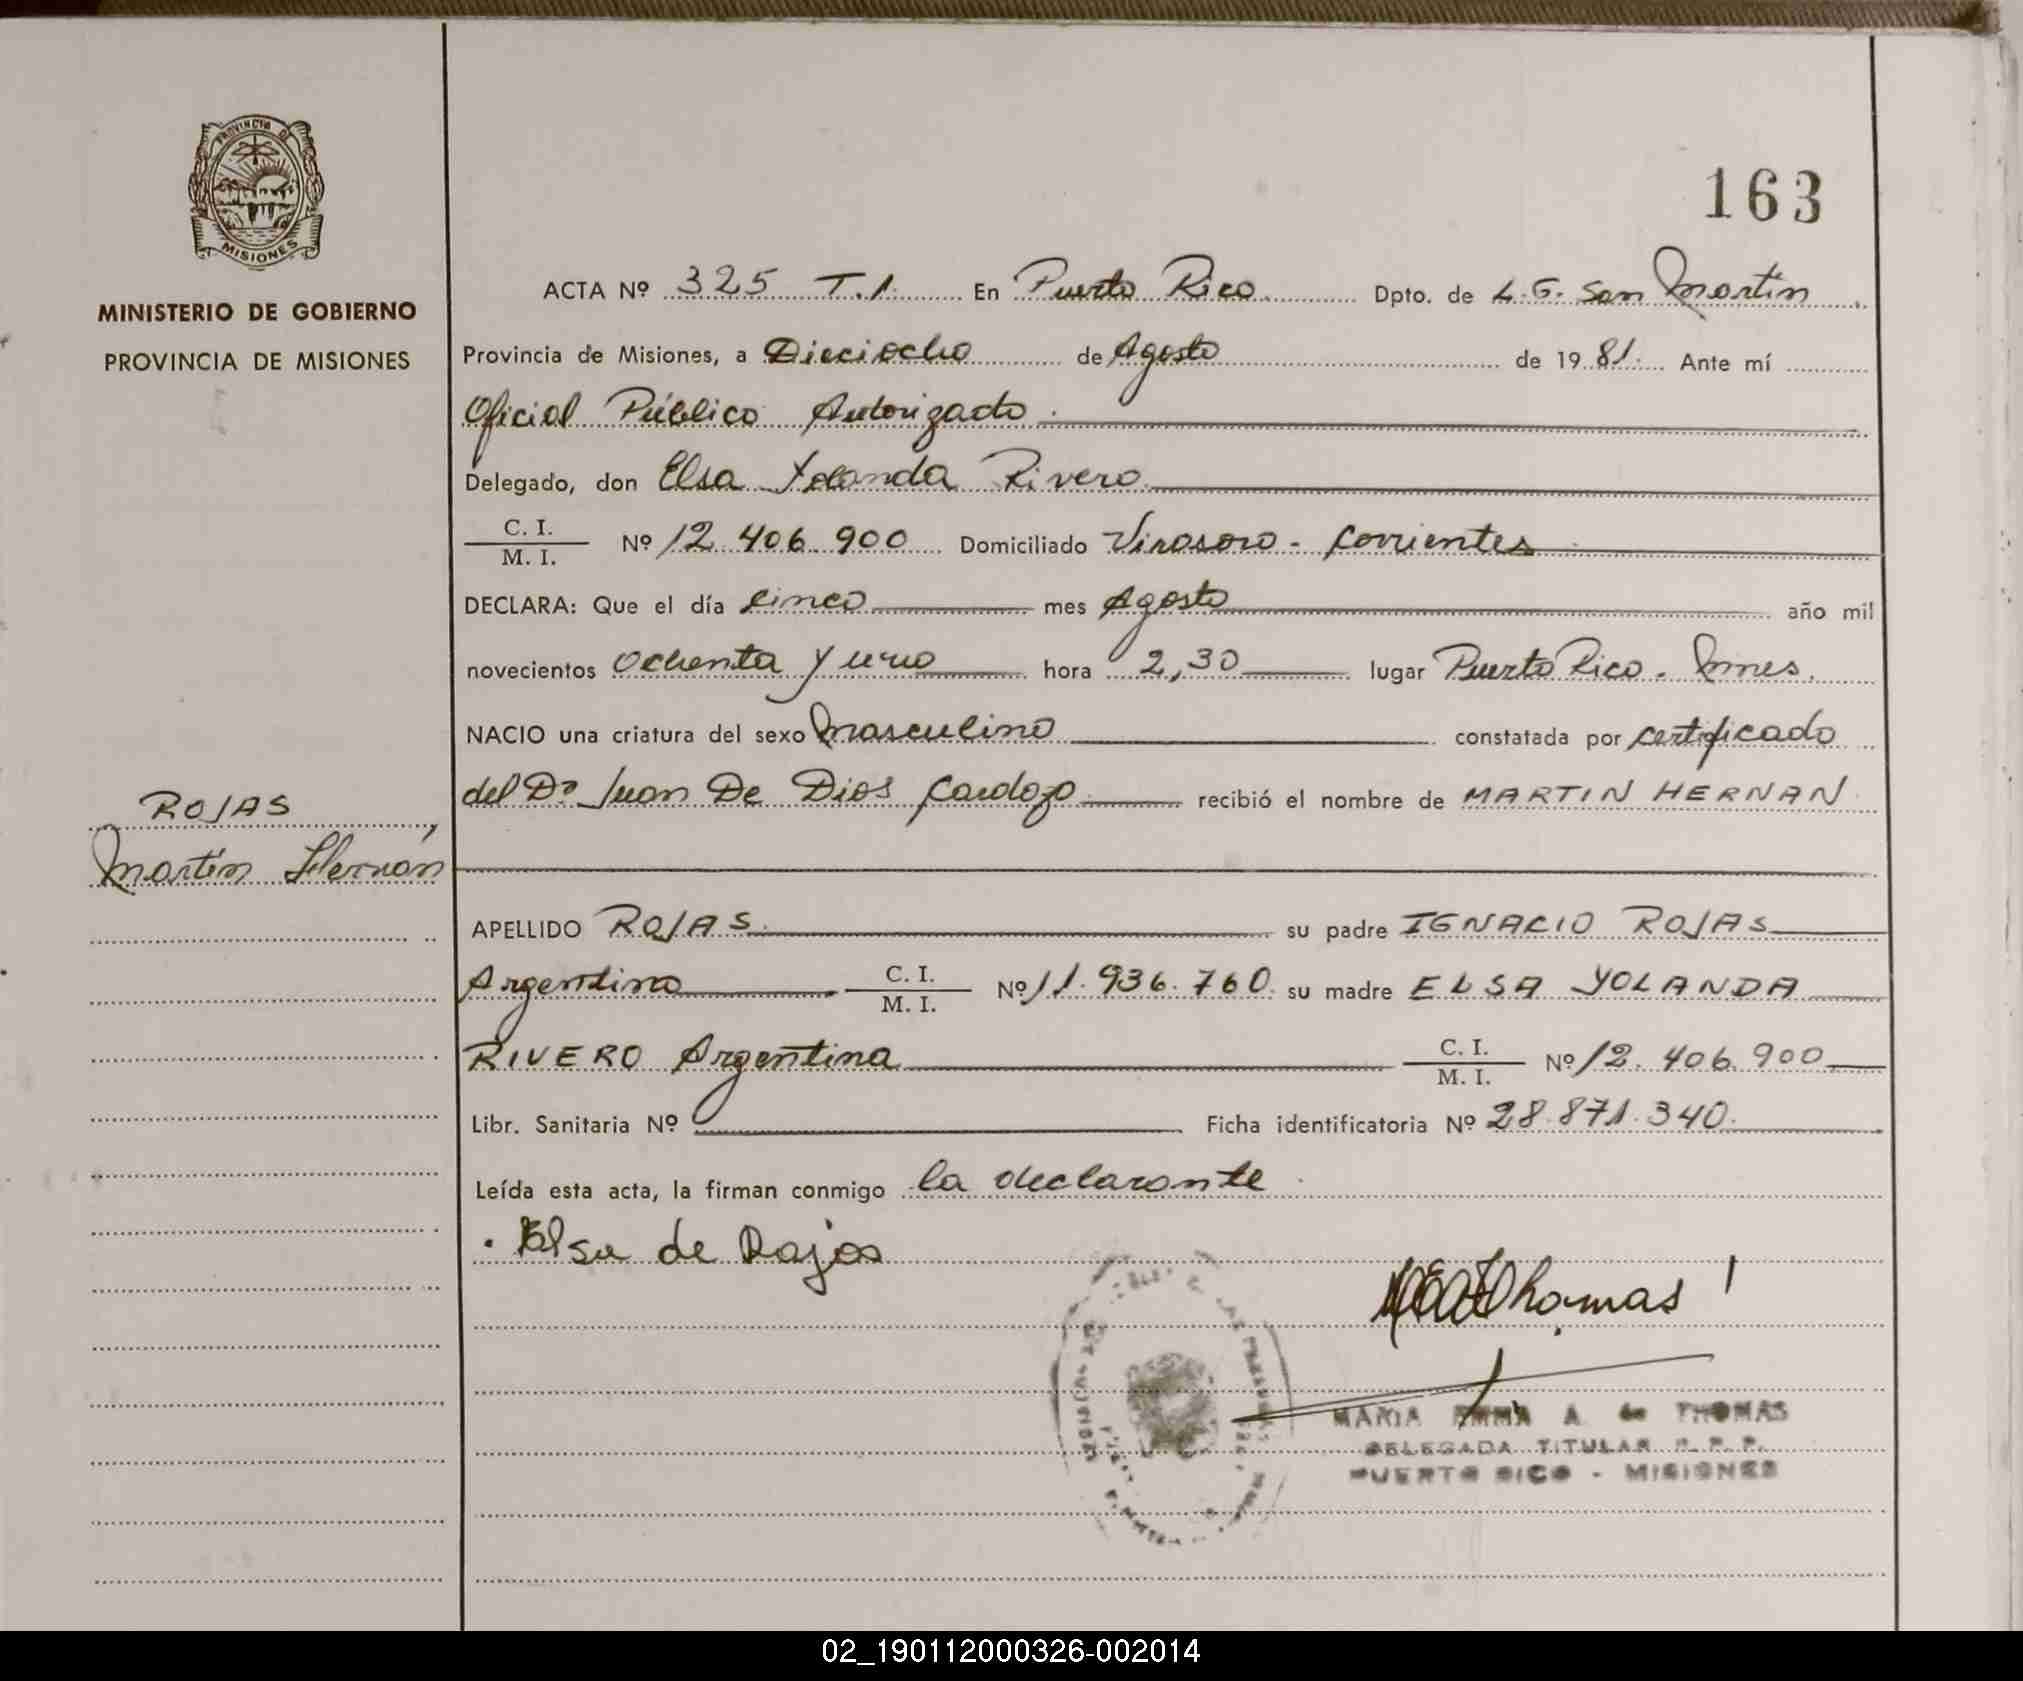 PROVINCIA DE
MISIONES
MINISTERIO DE GOBIERNO
PROVINCIA DE MISIONES
ROJAS,
Martín Hernán
163
ACTA Nº 325 T.1. En Puerto Rico Dpto. de L.G. San Martín
Provincia de Misiones, a Dieciocho de Agosto de 1981. Ante mí
Oficial Público Autorizado.
Delegado, don Elsa Yolanda Rivero
C. I. / M. I. Nº 12.406.900 Domiciliado Virasoro - Corrientes
DECLARA: Que el día cinco mes Agosto año mil
novecientos Ochenta y uno hora 2,30 lugar Puerto Rico. Mnes.
NACIO una criatura del sexo Masculino constatada por certificado
del Dr Juan De Dios Cardozo recibió el nombre de MARTIN HERNAN
APELLIDO ROJAS. su padre IGNACIO ROJAS
Argentino C. I. / M. I. Nº 11.936.760. su madre ELSA YOLANDA
RIVERO Argentina C. I. / M. I. Nº 12.406.900
Libr. Sanitaria Nº Ficha identificatoria Nº 28.871.340.
Leída esta acta, la firman conmigo la declarante
Elsa de Rojas
Thomas
MARIA EMMA A. de THOMAS
DELEGADA TITULAR R. P. P.
PUERTO RICO - MISIONES
02_190112000326-002014